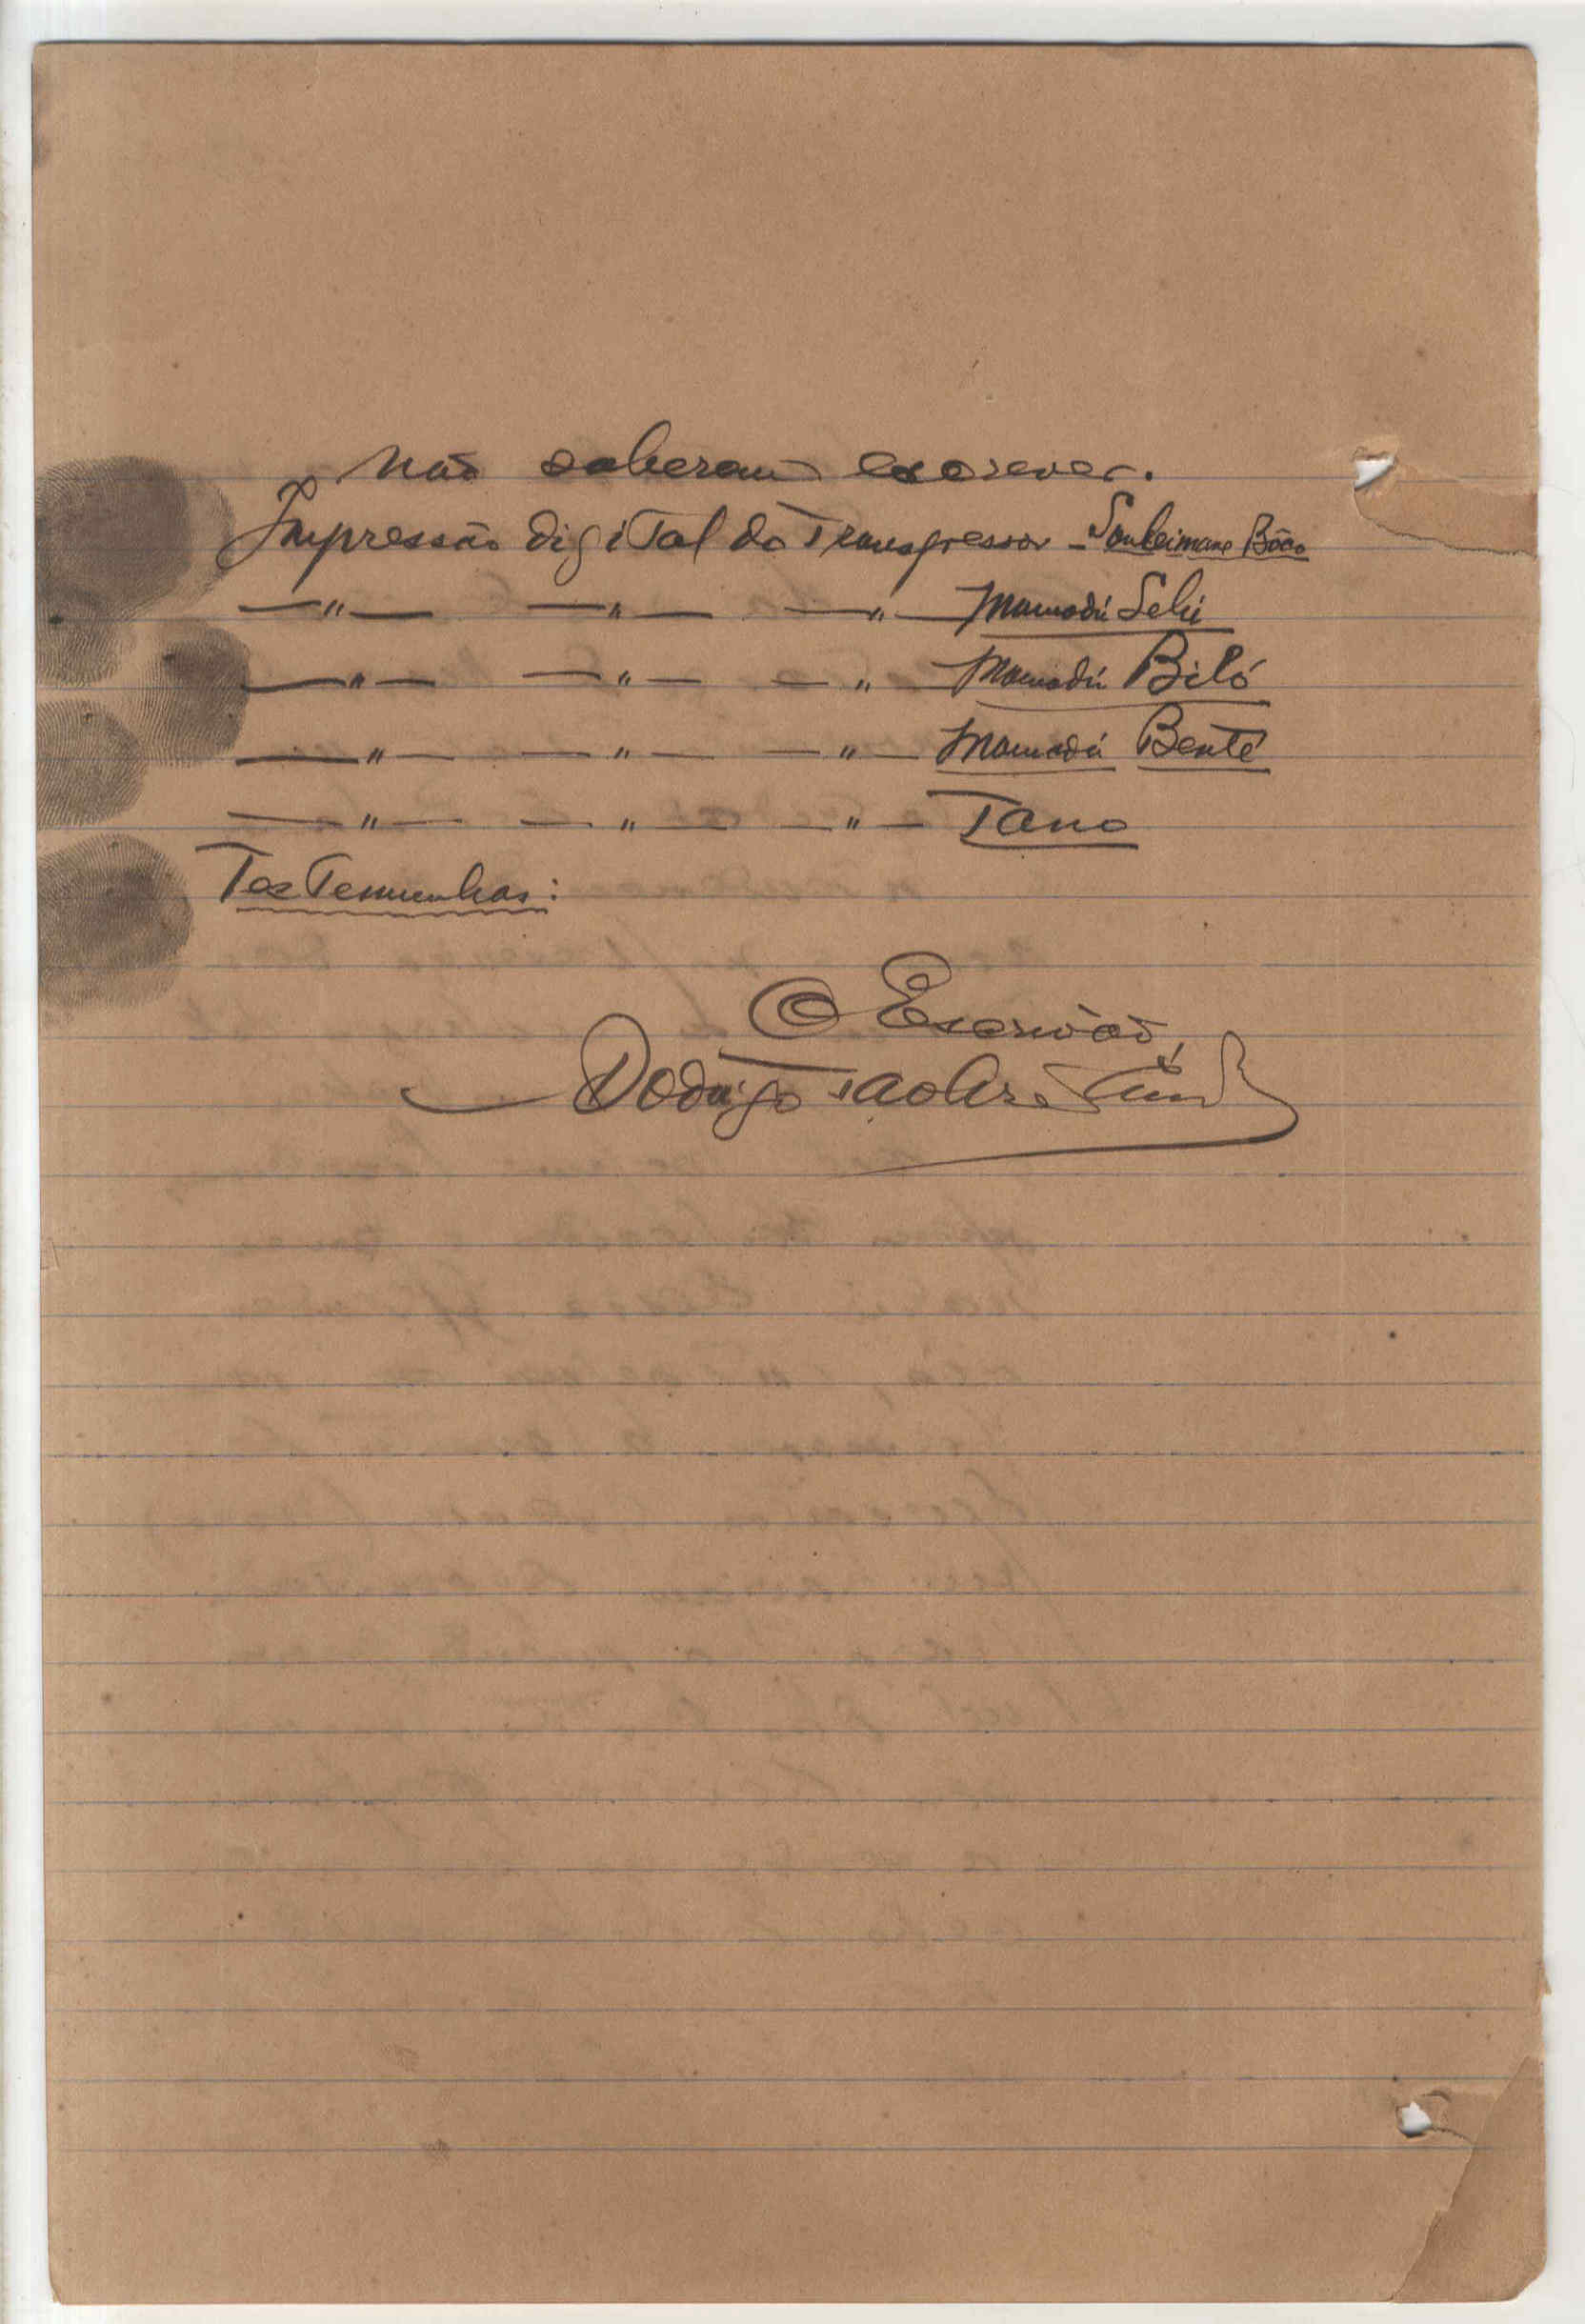 não saberem escrever.
Impressão digital do Transgressor - Souleimane Bóco
—"— —"— —"— Mamadú Selú
—"— —"— —"— Mamadú Biló
—"— —"— —"— Mamadú Benté
—"— —"— —"— Tano
Testemunhas:
O Escrivão,
Rodrigo